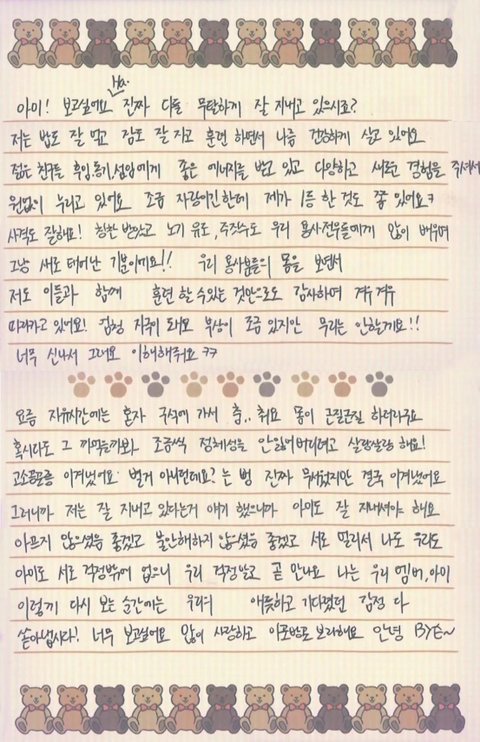 아미! 보고싶어요 ㅠㅠ. 진짜 다들 무탈하게 잘 지내고 있으시죠?
저는 밥도 잘 먹고 잠도 잘 자고 훈련 하면서 나름 건강하게 살고 있어요
젊은 친구들 후임, 동기, 선임에게 좋은 에너지를 받고 있고 다양하고 새로운 경험을 주셔서
원없이 누리고 있어요 조금 자랑이긴한데 제가 1등 한 것도 쫌 있어요ㅋ
사격도 잘해요! 칭찬 받았고 노기 유도, 주짓수도 우리 용사전우들에게 많이 배우며
그냥 새로 태어난 기분이에요!! 우리 용사분들의 몸을 보면서
저도 이들과 함께 훈련 할 수 있는 것만으로도 감사하며 겨우 겨우
따라가고 있어요! 걱정 치우기 돼요 부상이 조금 있지만 무리는 안할게요!!
너무 신나서 그래요 이해해줘요 ㅋㅋ
요즘 자유시간에는 혼자 구석에 가서 춤.. 춰요 몸이 근질근질 하더라구요
혹시라도 그 까먹을까봐 조금씩 정체성을 안잃어버리려고 살랑살랑 해요!
고소공포증 이겨냈어요 별거 아니던데요? 는 뻥 진짜 무서웠지만 결국 이겨냈어요
그러니까 저는 잘 지내고 있다는거 얘기 했으니까 아미도 잘 지내셔야 해요
아프지 않으셨음 좋겠고 불안해하지 않으셨음 좋겠고 서로 떨려서 나도 우리도
아미도 서로 걱정밖에 없으니 우리 걱정말고 곧 만나요 나는 우리 멤버, 아미
이렇게 다시 보는 순간에는 우리의 애틋하고 기다렸던 감정 다
쏟아냅시다! 너무 보고싶어요 많이 사랑하고 이곳방탄 보라해요 안녕 By손~